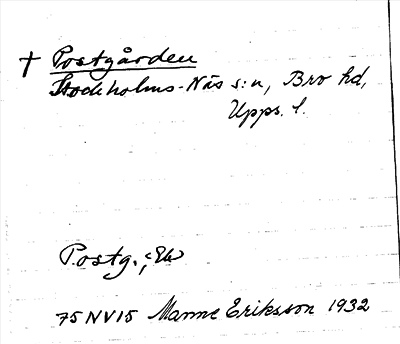 † Postgården
Stockholms-Näs s:n, Bro hd,
Upps. l.
Postg.;
75 NV15 Manne Eriksson 1932